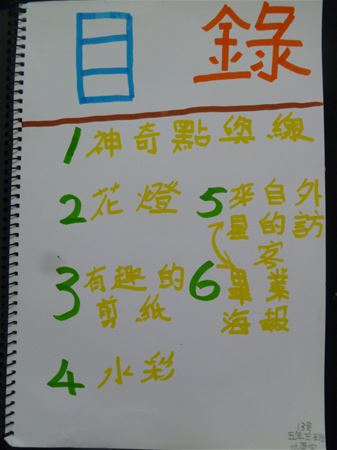 目錄
1 神奇點與線
2 花燈
3 有趣的
剪紙
4 水彩
5 來自外
星的訪
客
6 畢業
海報
13號